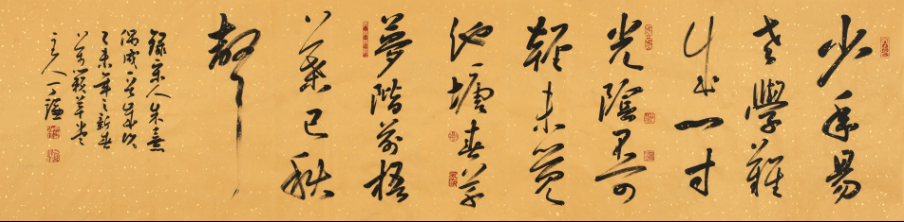 少年易
老學難
成一寸
光陰不可
輕未覺
池塘春草
夢階前梧
葉已秋
聲
錄宋人朱熹
偶成一首歲次
乙未年之新春
草堂
主人一謙